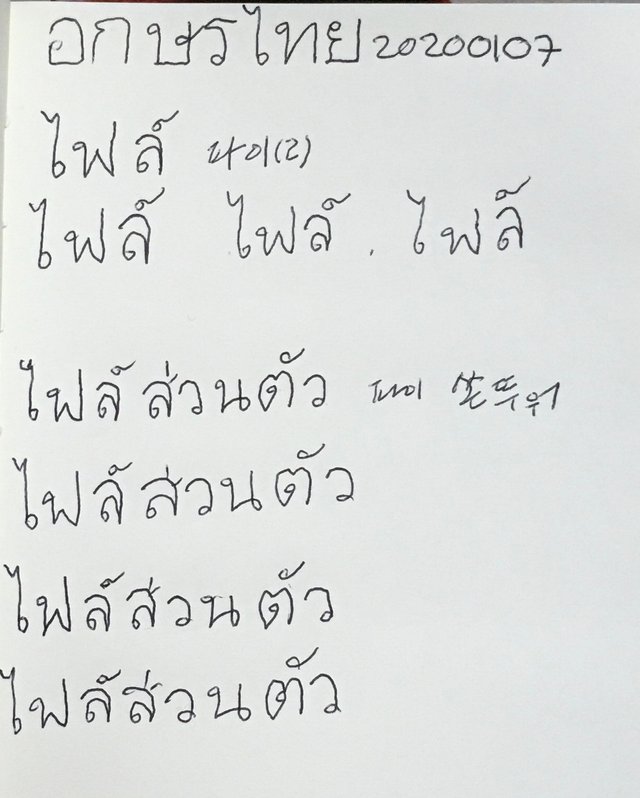 อกษรไทย20200107
ไฟล์ 퐈이(ㄹ)
ไฟล์ ไฟล์ . ไฟล์
ไฟล์ส่วนตัว
ไฟล์ส่วนตัว
ไฟล์ส่วนตัว
ไฟล์ส่วนตัว